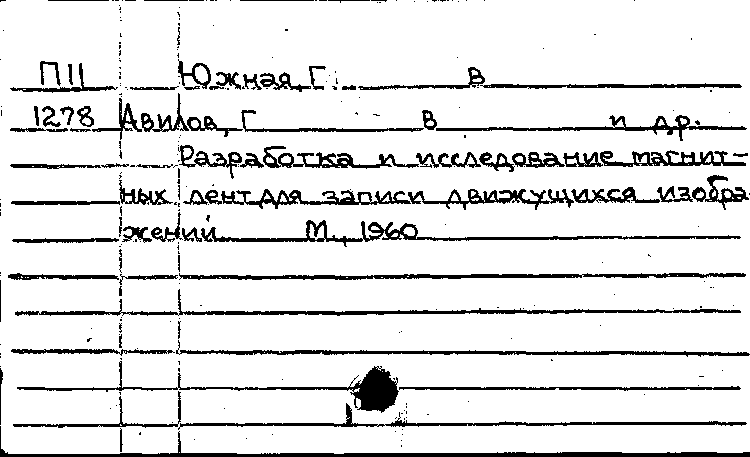 П11 Южная, Г. В
1278 Авилов, Г В и др.
Разработка и исследование магнит-
ных лент для записи движущихся изобра
жений М., 1960